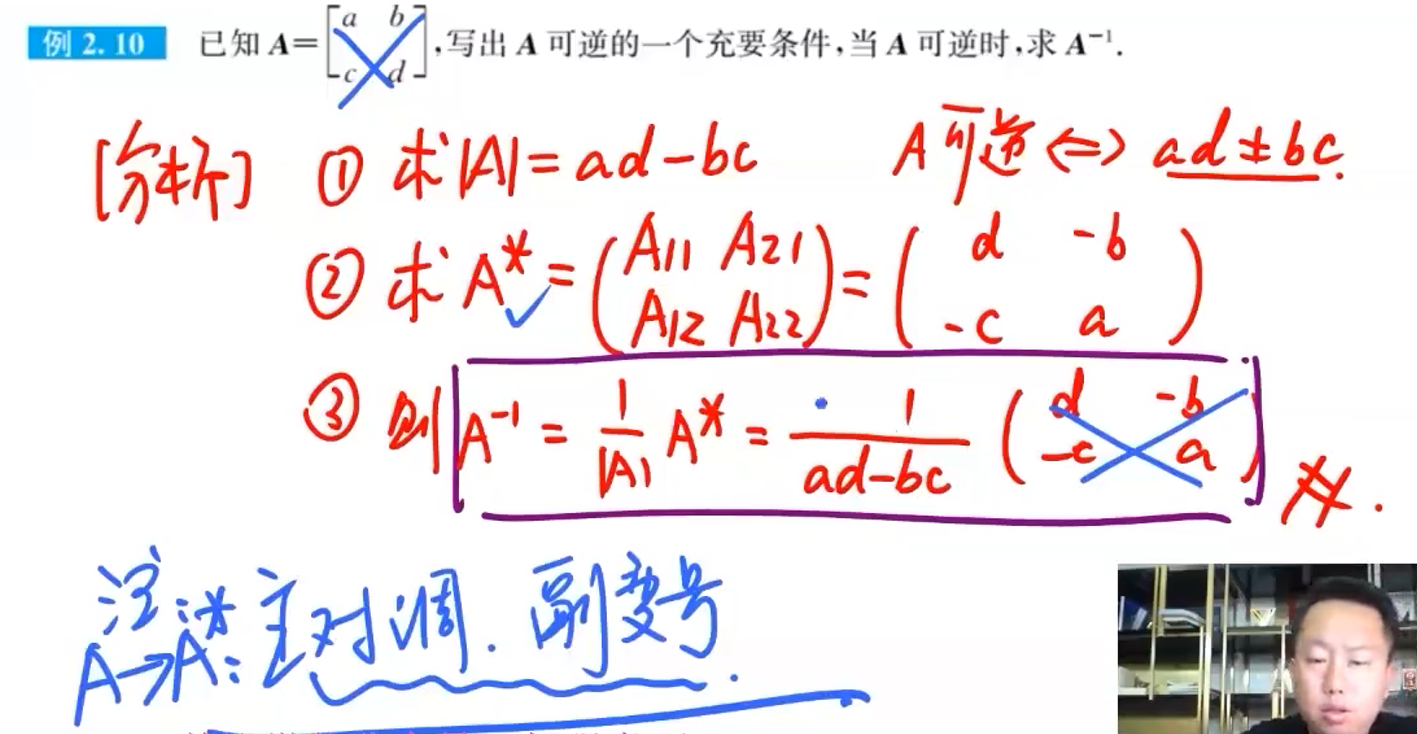 例 2.10 已知 A=[a b c d],写出 A 可逆的一个充要条件,当 A 可逆时,求 A⁻¹.
[分析] ① 求|A|=ad-bc A可逆<=>ad≠bc.
② 求A*=(A11 A21 A12 A22)=(d -b -c a)
③ 则A⁻¹=1/|A| A*=1/(ad-bc) (d -b -c a)
注:
A→A*:主对调.副变号.